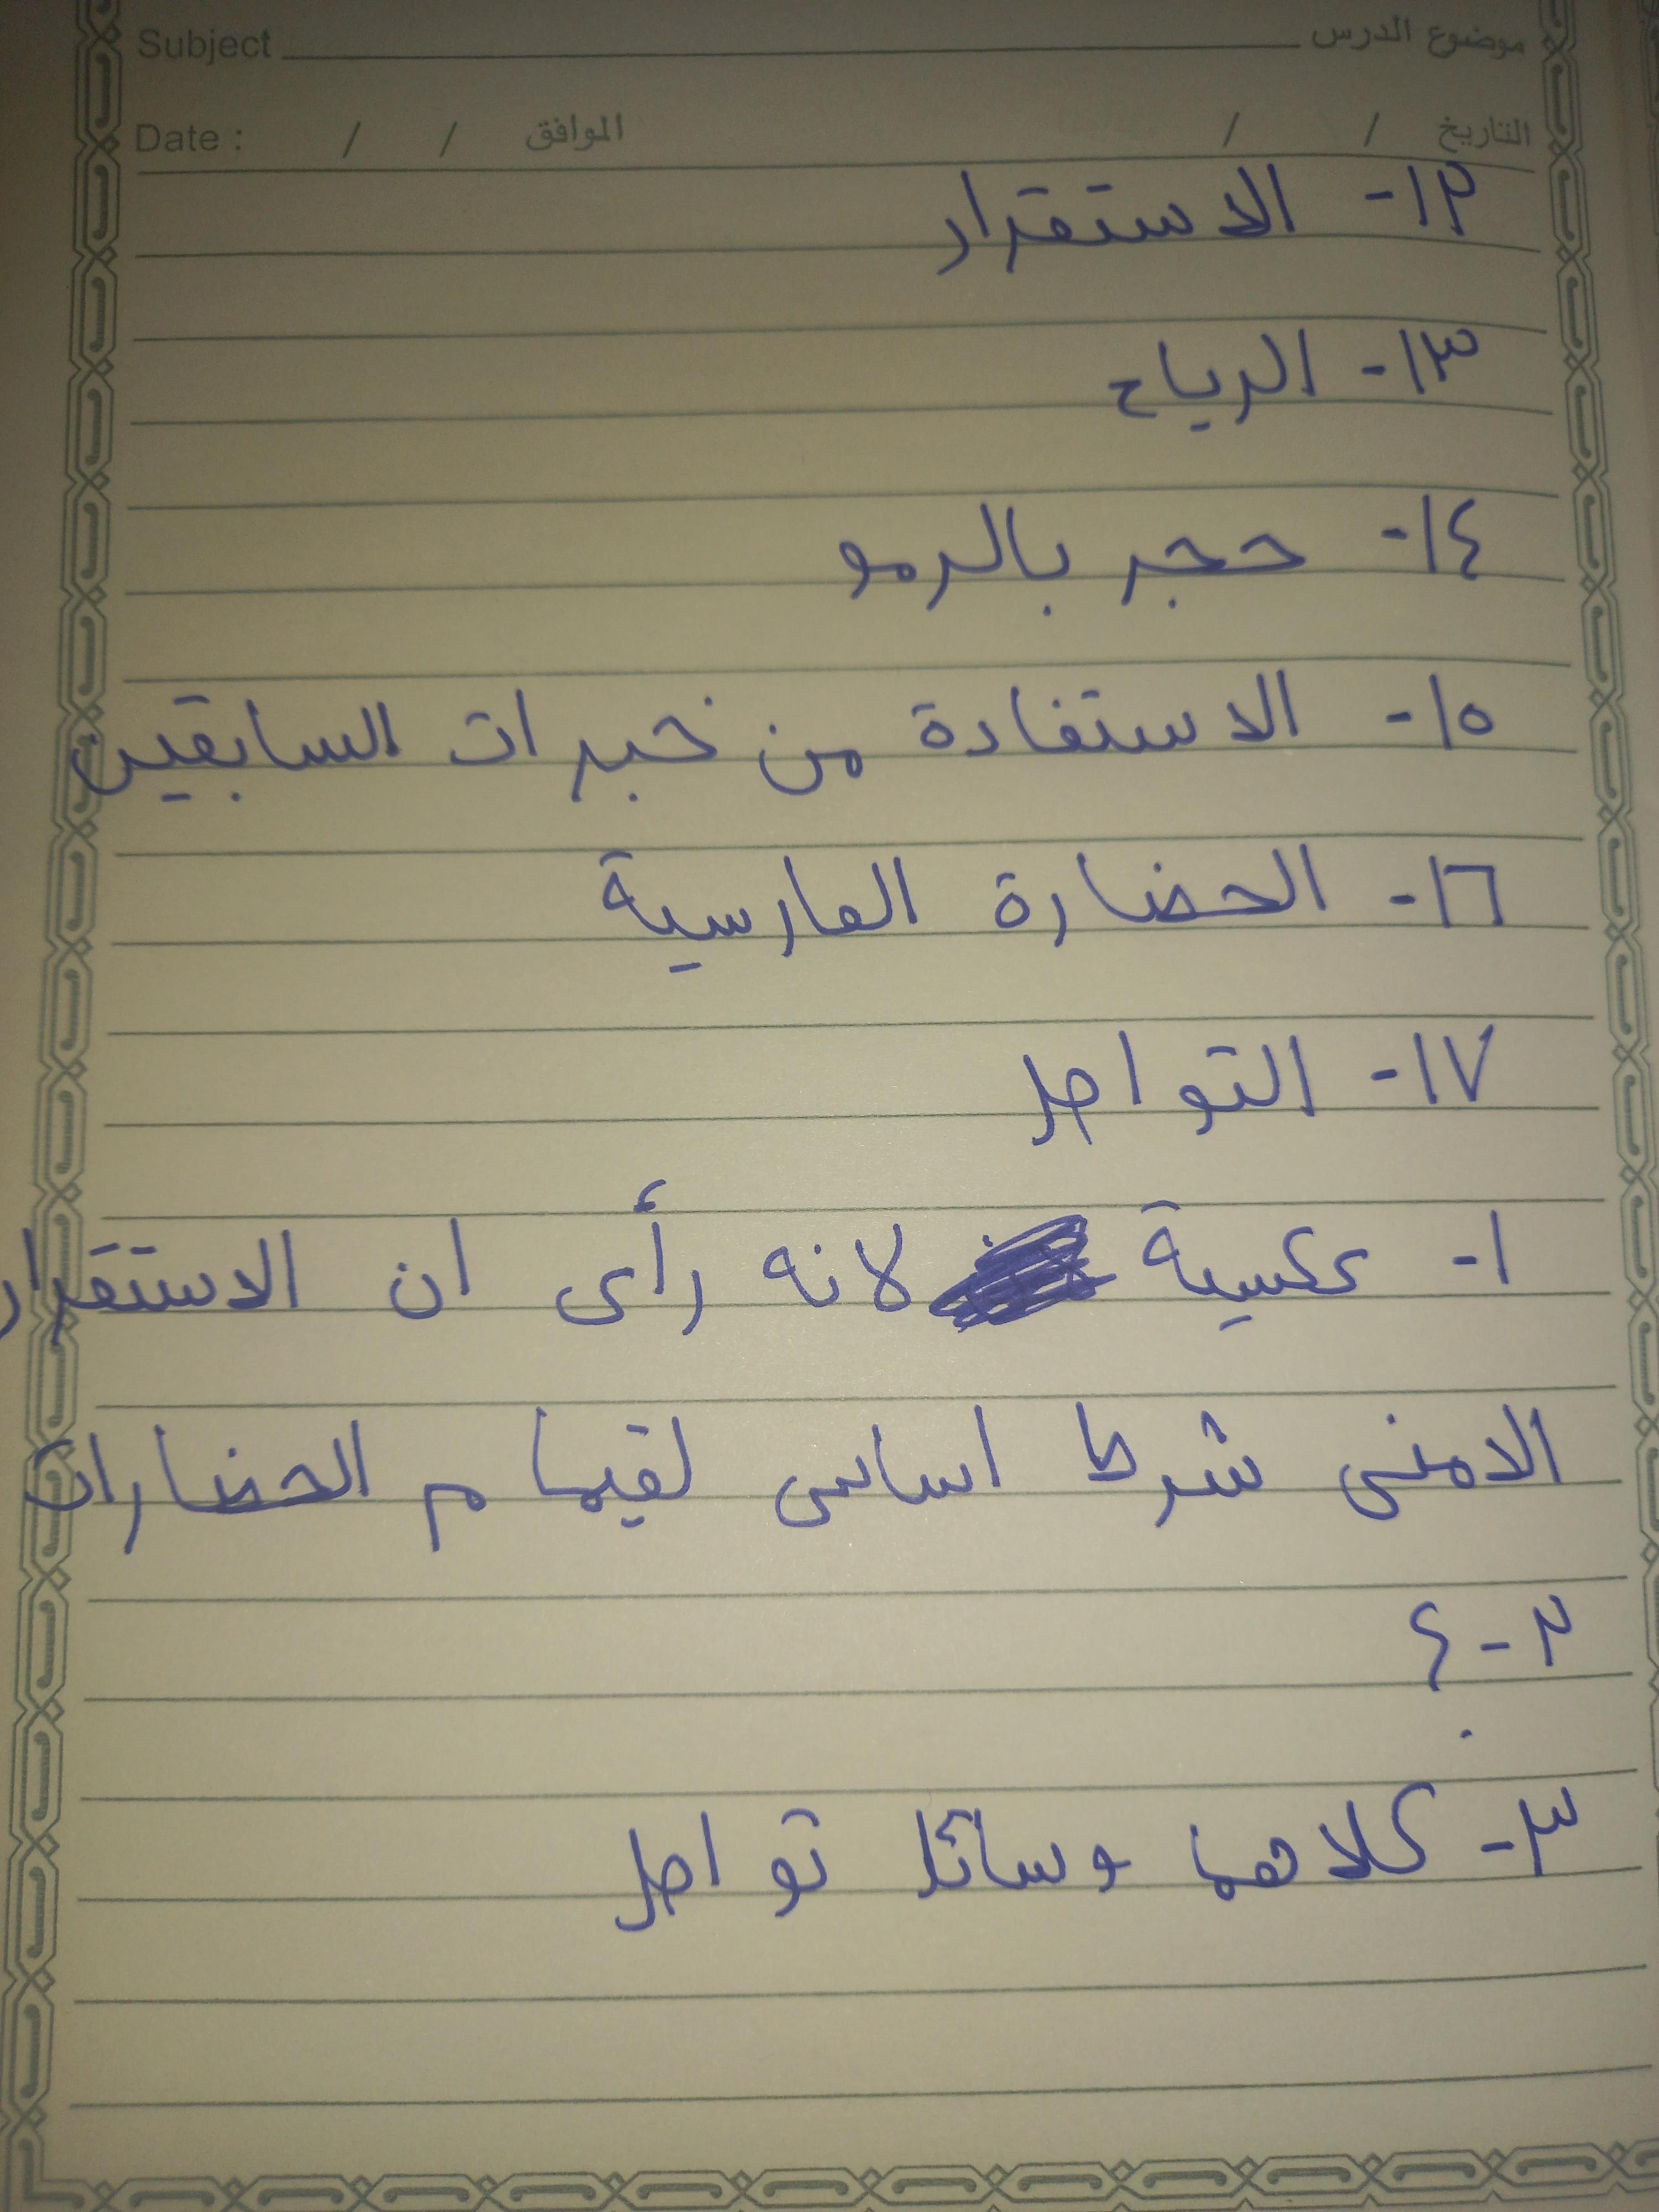 Subject موضوع الدرس
Date : / / الموافق / / التاريخ
١٢- الاستقرار
١٣- الرياح
١٤- حجر بالرمو
١٥- الاستفادة من خبرات السابقين
١٦- الحضارة الفارسية
١٧- التواصل
١- عكسية لانه رأى ان الاستقرار
الامنى شرط اساسى لقيام الحضارات
٢- ؟
٣- كلاهما وسائل تواصل